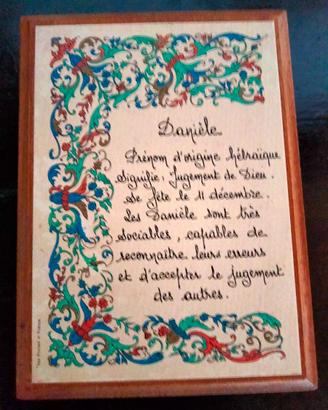 Danièle
Prénom d'origine hébraïque
Signifie : Jugement de Dieu.
Se fête le 11 décembre.
Les Danièle sont très
sociables, capables de
reconnaître leurs erreurs
et d'accepter le jugement
des autres.